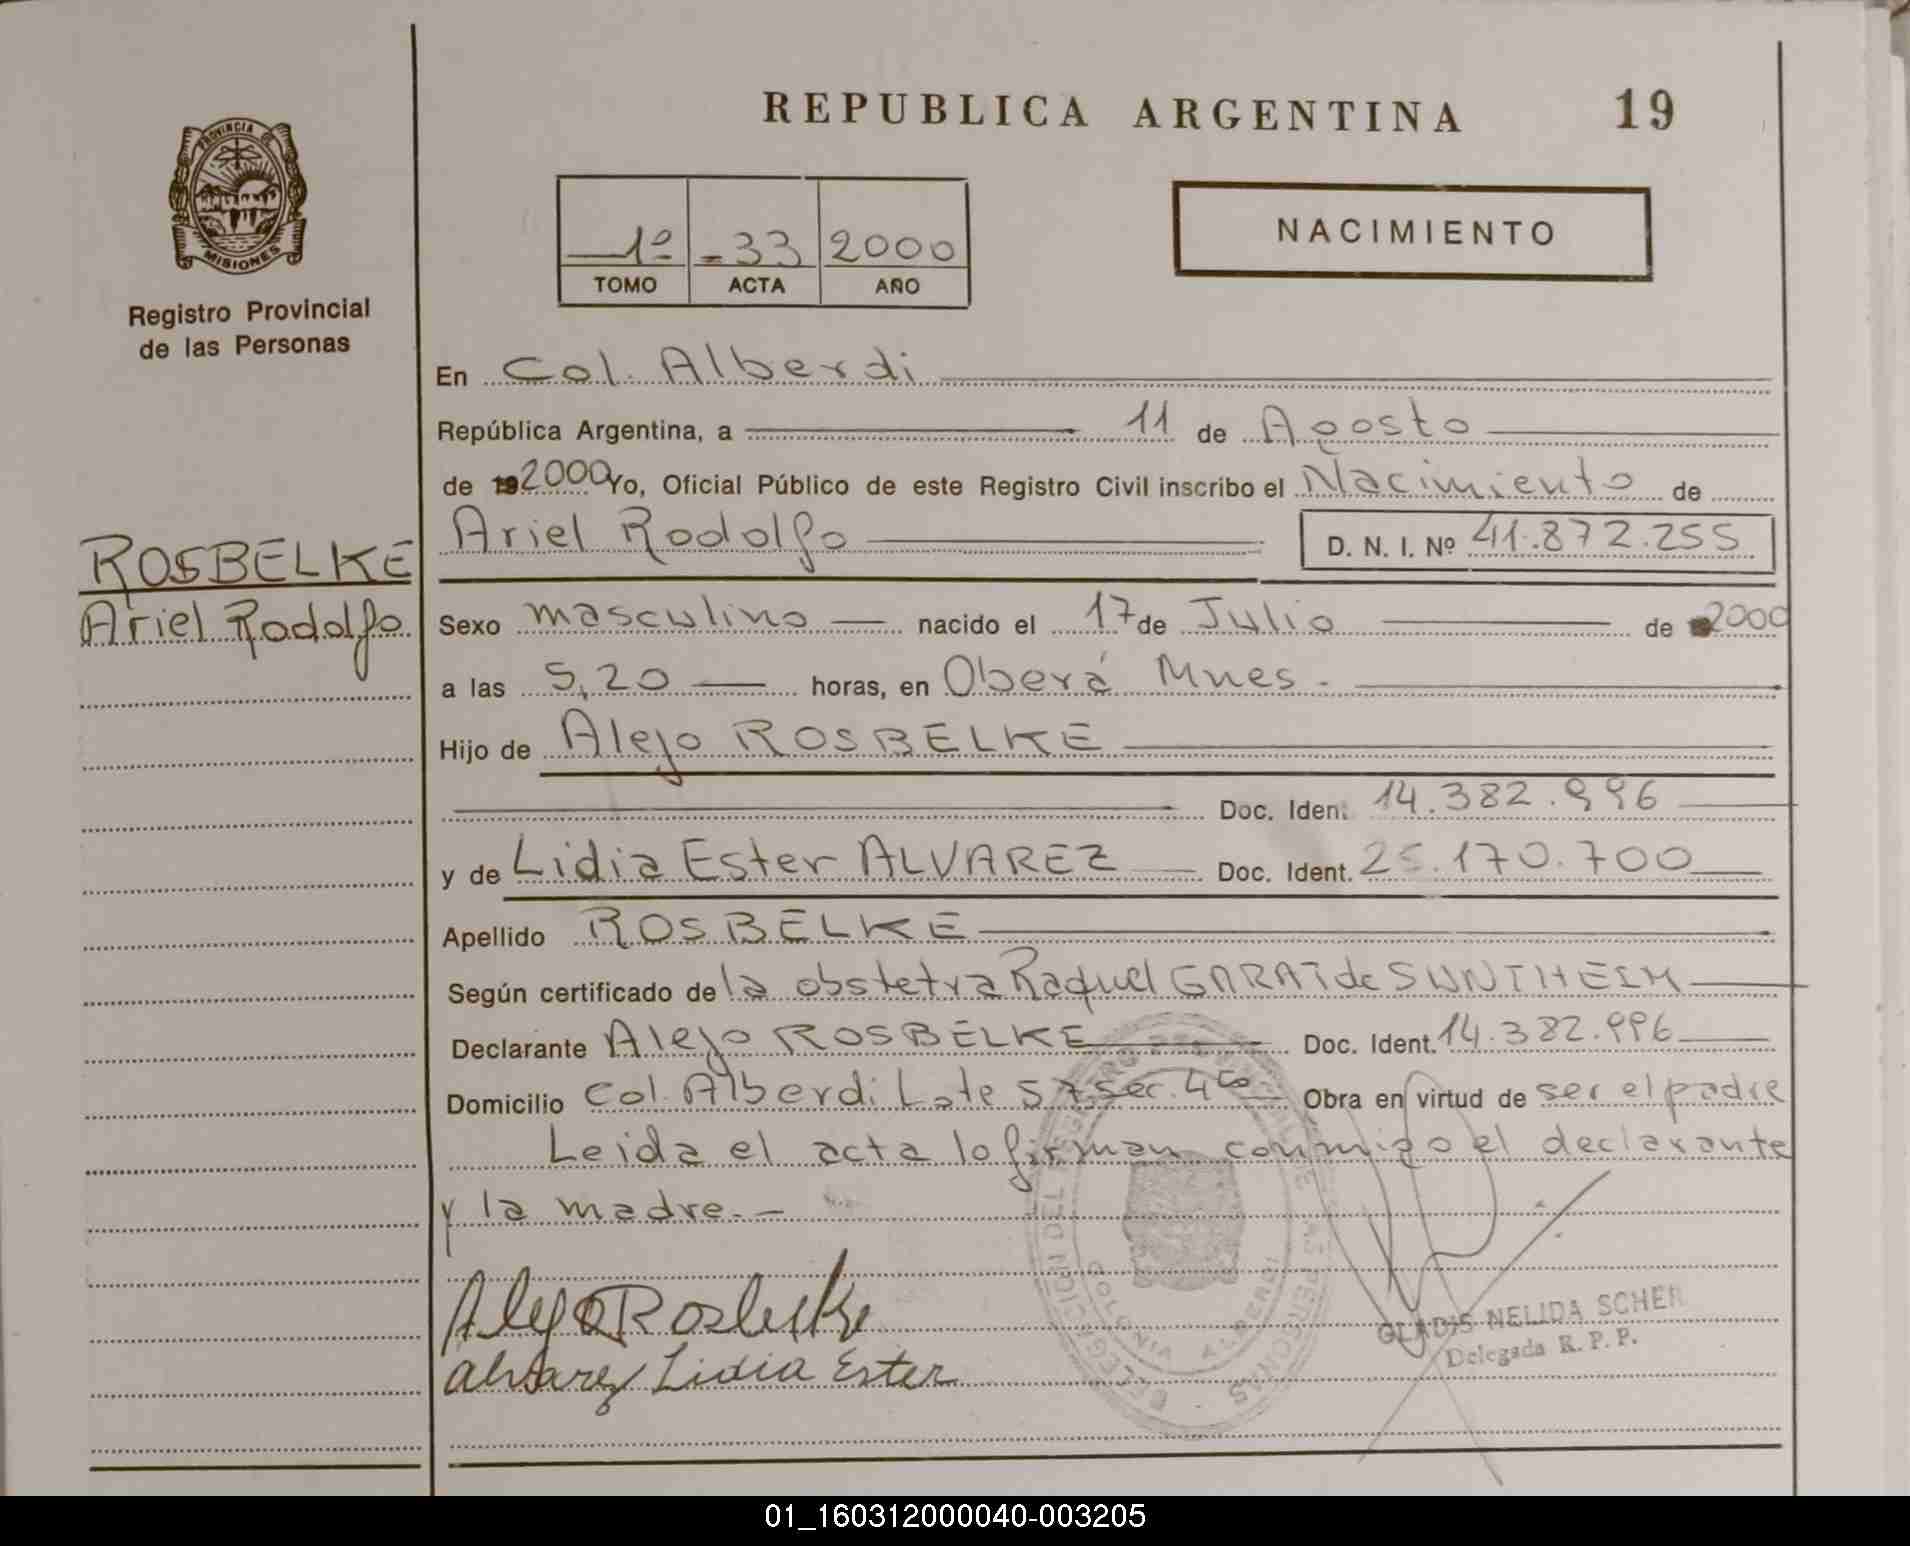 REPUBLICA ARGENTINA 19
PROVINCIA DE
MISIONES
Registro Provincial
de las Personas
1º -33 2000
TOMO ACTA AÑO
NACIMIENTO
En Col. Alberdi
República Argentina, a 11 de Agosto
de 192000 Yo, Oficial Público de este Registro Civil inscribo el Nacimiento de
ROSBELKE
Ariel Rodolfo
Ariel Rodolfo D. N. I. Nº 41.872.255
Sexo masculino nacido el 17 de Julio de 2000
a las 5,20 horas, en Oberá Mnes.
Hijo de Alejo ROSBELKE
Doc. Ident. 14.382.996
y de Lidia Ester ALVAREZ Doc. Ident. 25.170.700
Apellido ROSBELKE
Según certificado de la obstetra Raquel GARAT de SUNTHEIM
Declarante Alejo ROSBELKE Doc. Ident. 14.382.996
Domicilio Col. Alberdi Lote 57 sec. 4ta Obra en virtud de ser el padre
Leida el acta lo firman conmigo el declarante
y la madre.-
Alejo Rosbelke
Alvarez Lidia Ester
COLONIA ALBERDI
GLADIS NELIDA SCHER
Delegada R. P. P.
01_160312000040-003205